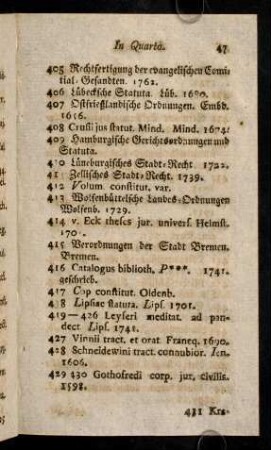 In Quarto. 47
405 Rechtfertigung der evangelischen Comi-
tial-Gesandten. 1762.
406 Lübecksche Statuta. Lüb. 1680.
407 Ostfrießländische Ordnungen. Embd.
1616.
408 Crusii jus statut. Mind. Mind. 1674.
409 Hamburgische Gerichtsordnungen und
Statuta.
410 Lüneburgisches Stadt-Recht 1722.
41 Zellisches Stadt-Recht. 1739.
412 Volum. constitut. var.
413 Wolfenbüttelsche Landes-Ordnungen
Wolfenb. 1729.
414 v. Eck theses jur. univers. Helmst.
170
415 Verordnungen der Stadt Bremen.
Bremen.
416 Catalogus biblioth. P***. 1741.
geschrieb.
417 Corp constitut. Oldenb.
418 Lipsiae statura. Lips. 1701.
419—426 Leyseri meditat. ad pan-
dect Lips. 1741.
427 Vinnii tract. et orat Franeq. 1690.
428 Schneidewini tract. connubior. Jen.
1606.
429 430 Gothofredi corp. jur. civilis.
1598.
431 Kra-